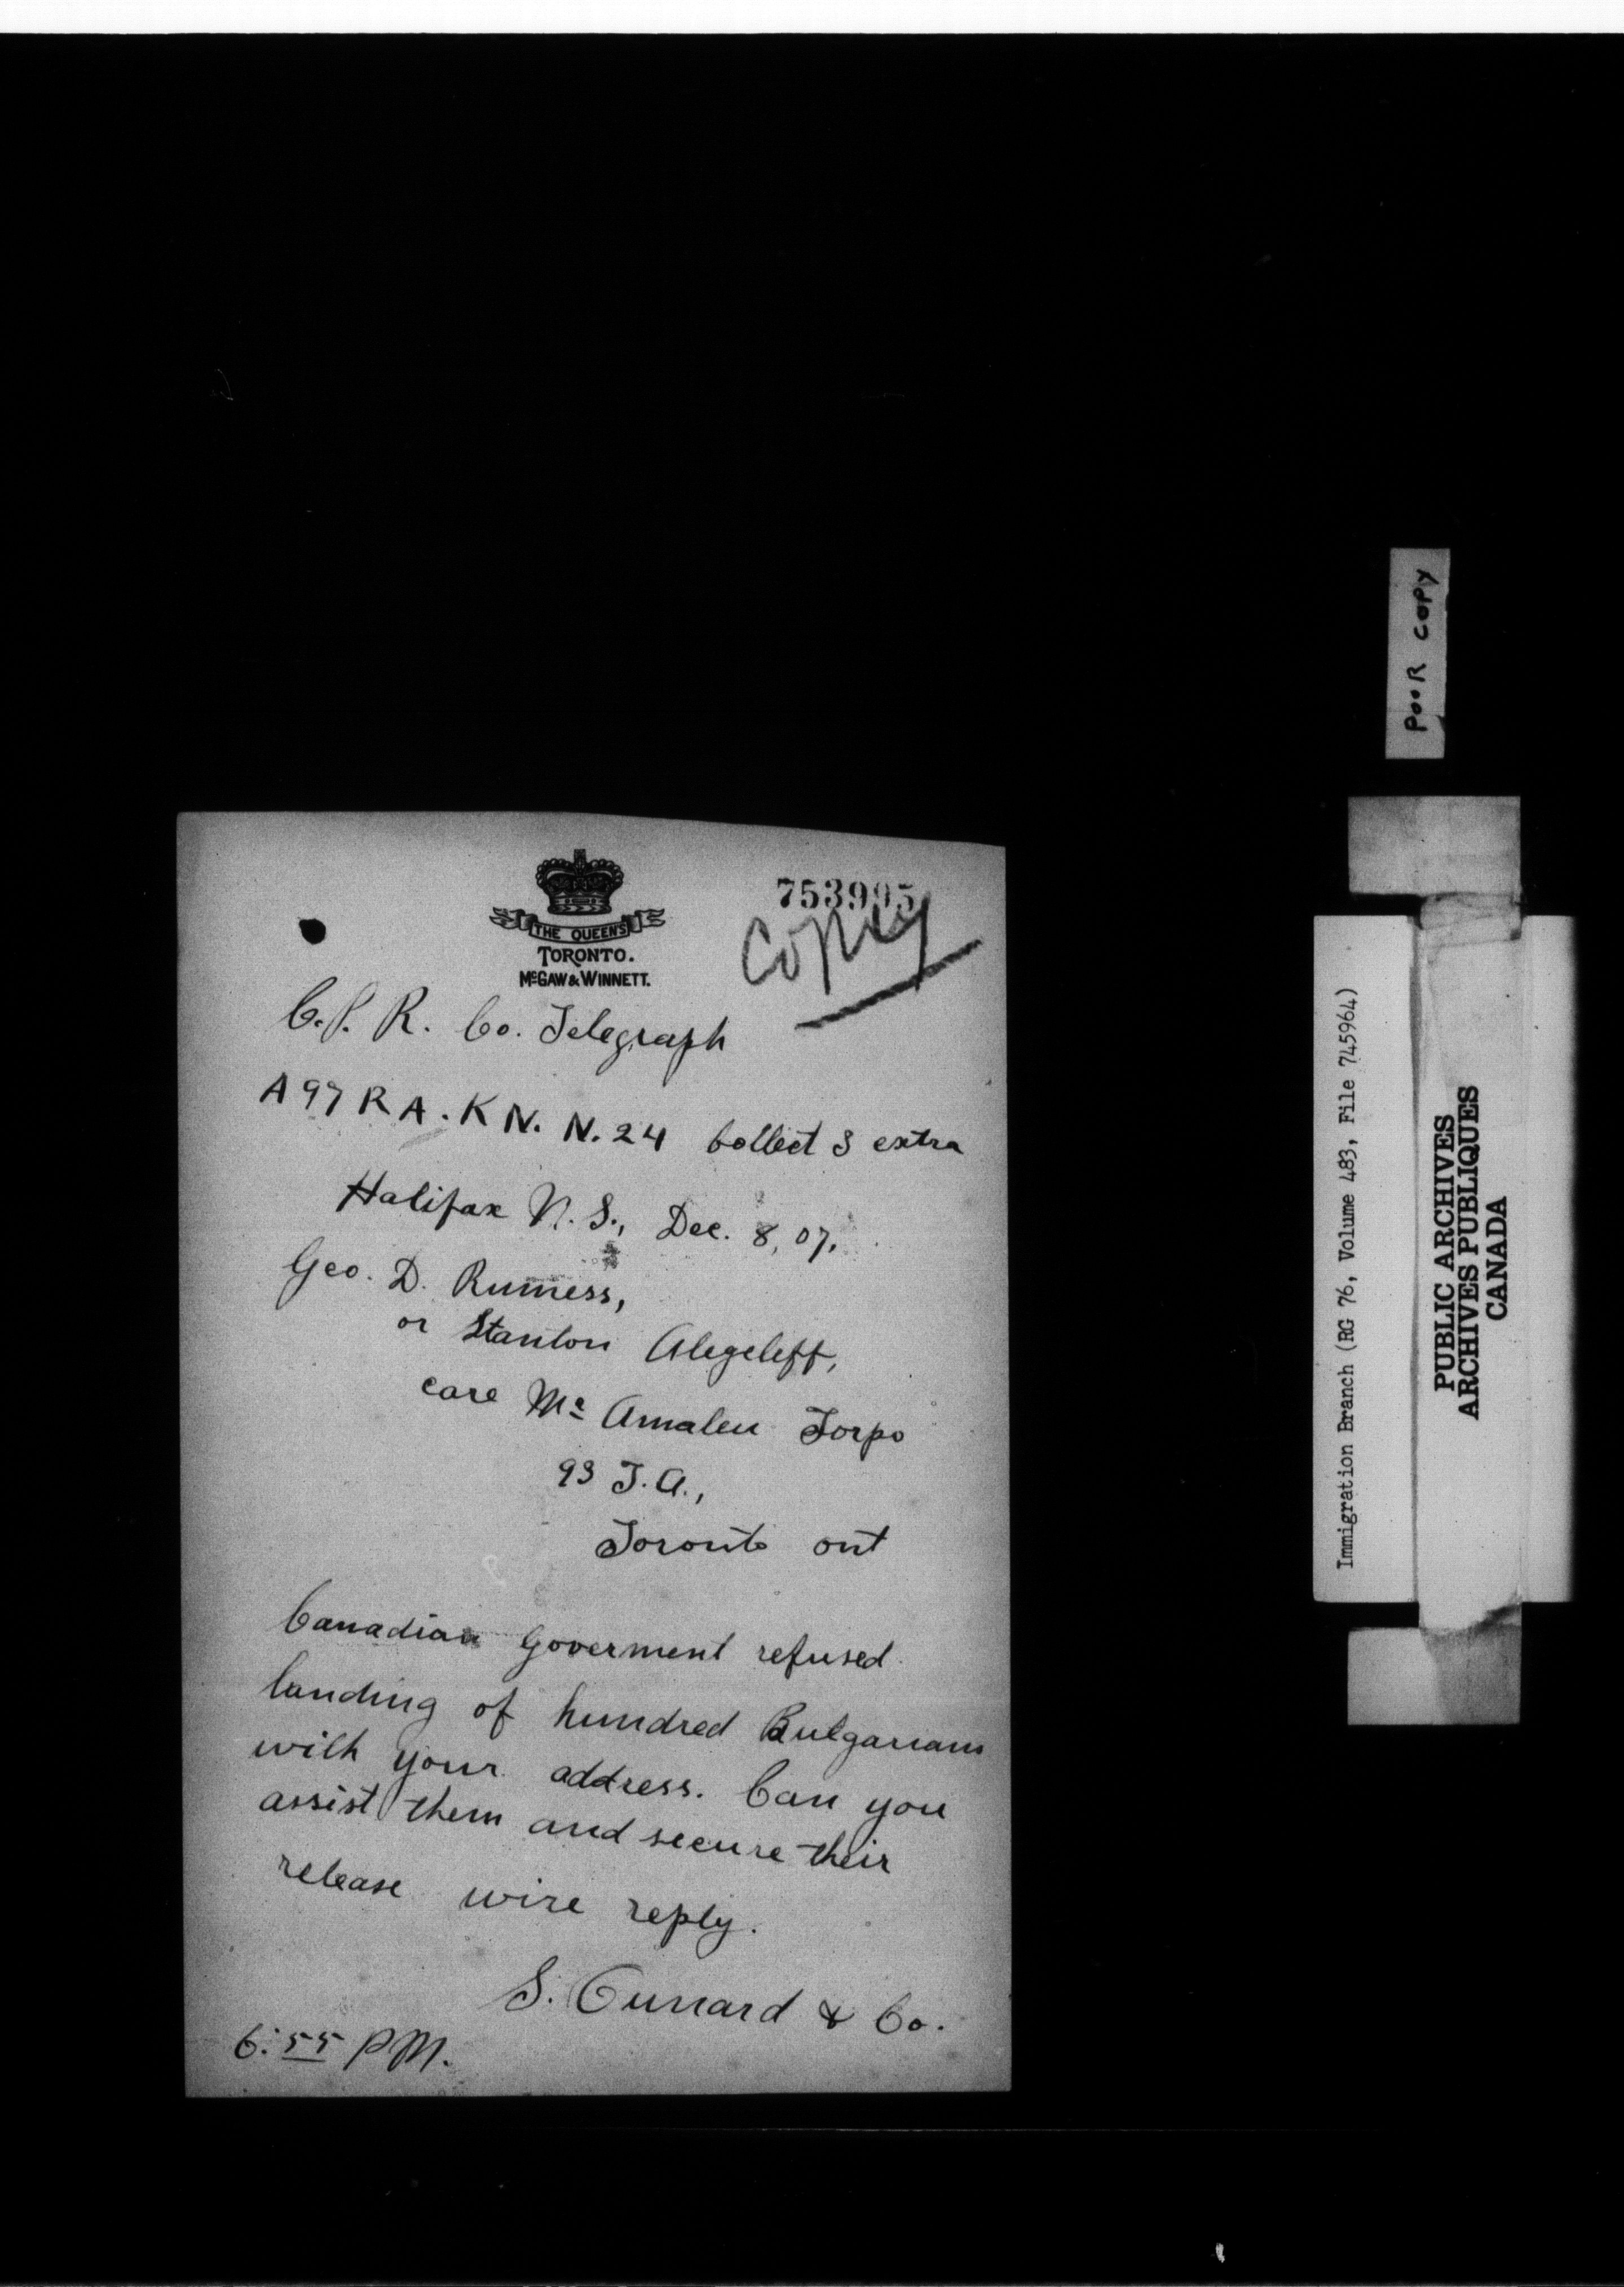 THE QUEEN'S
TORONTO.
McGAW & WINNETT.
753995
Copy
C.P.R. Co. Telegraph
A 97 R A. K N. N. 24 Collect 3 extra
Halifax N.S., Dec. 8, 07.
Geo. D. Rumess,
or Stanton Alegeleff,
care Mc Amaleu Torpo
93 T.A.,
Toronto ont
Canadian Goverment refused
landing of hundred Bulgarians
with your address. Can you
assist them and secure their
release wire reply.
S. Cunard & Co.
6:55 PM.
POOR COPY
Immigration Branch (RG 76, Volume 483, File 745964)
PUBLIC ARCHIVES
ARCHIVES PUBLIQUES
CANADA